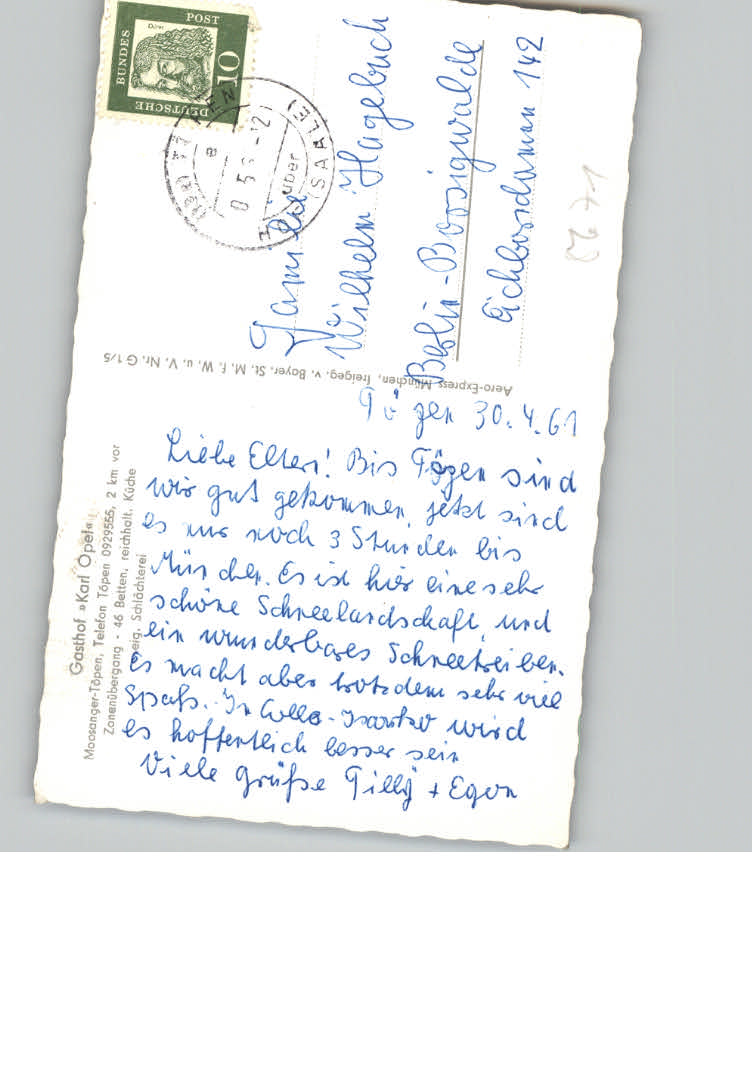 Gasthof »Karl Opel«
Moosanger-Töpen, Telefon Töpen 0929555, 2 km vor
Zonenübergang - 46 Betten, reichhalt. Küche
eig. Schlächterei
Töpen 30.4.61
Liebe Eltern! Bis Töpen sind
wir gut gekommen, jetzt sind
es nur noch 3 Stunden bis
München. Es ist hier eine sehr
schöne Schneelandschaft, und
ein wunderbares Schneetreiben.
Es macht aber trotzdem sehr viel
Spaß. In wird
es hoffentlich besser sein
Viele Grüße Tilly + Egon
Aero-Express München, freigeg. v. Bayer. St. M. f. W. u. V. Nr. G 1/5
DEUTSCHE BUNDES POST
10
über
(SAALE)
Familie
Wilhelm Hagebuch
Berlin-Borsigwalde
Eichborndamm 142